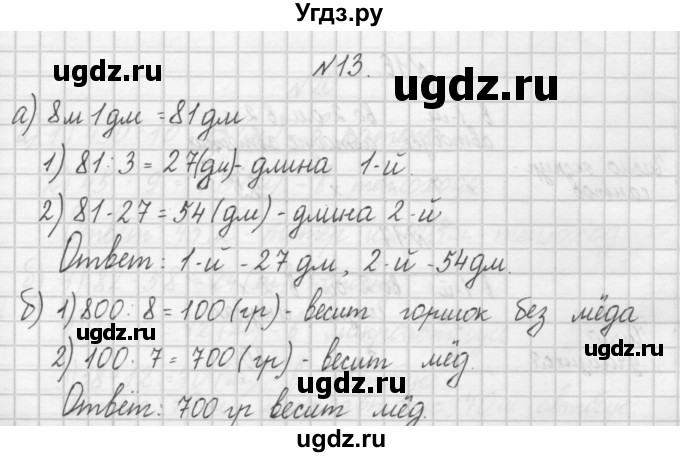 Угдз.ру
ugdz.ru ugdz.ru
№13.
а) 8м 1дм = 81дм
ugdz.ru
1) 81 : 3 = 27(дм)- длина 1-й.
2) 81 - 27 = 54 (дм) - длина 2-й
ugdz.ru
Ответ: 1-й - 27 дм, 2-й - 54дм.
б) 1) 800 : 8 = 100 (гр) - весит горшок без мёда
ugdz.ru ugdz.ru
2) 100 · 7 = 700 (гр) - весит мёд.
Ответ: 700 гр весит мёд.
ugdz.ru